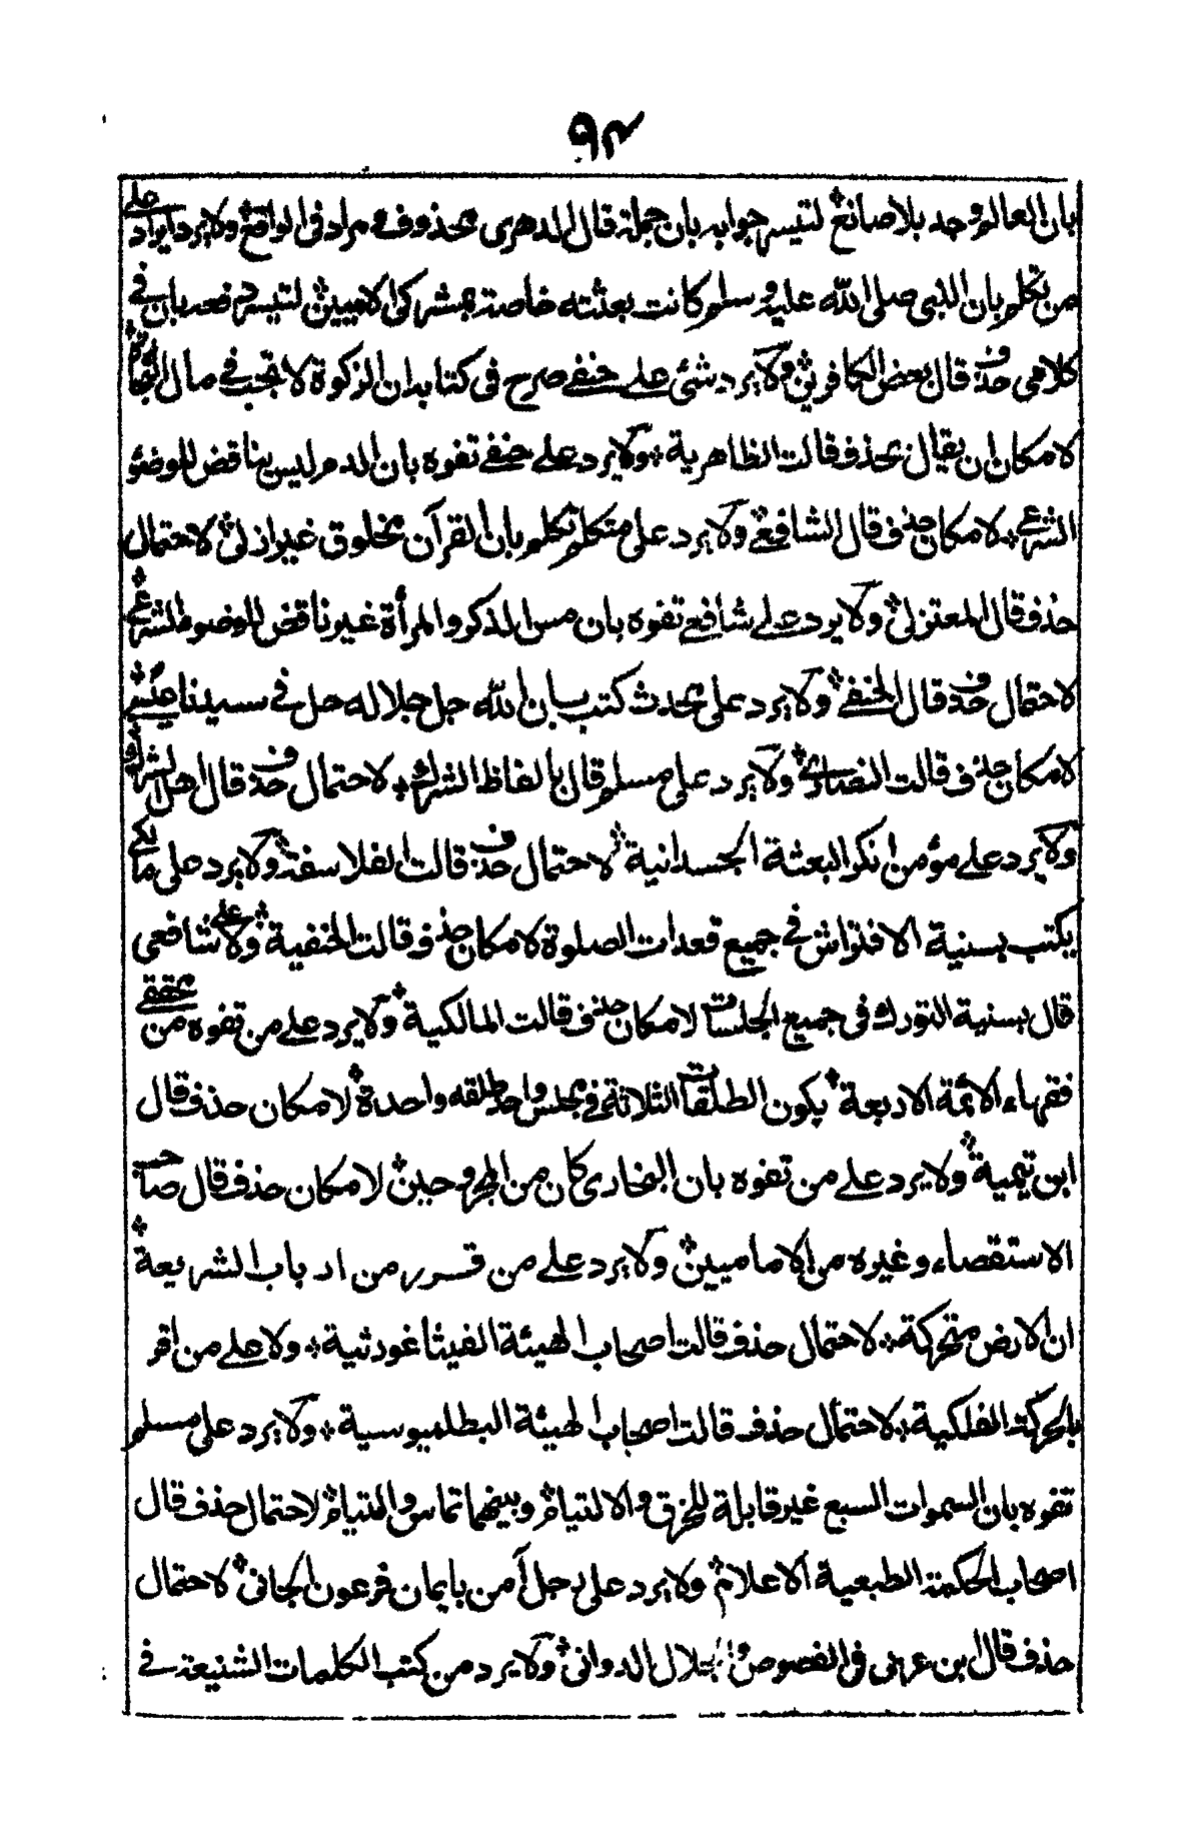 ٩٣
بان العالم وجد بلا صانع لتيسر جوابه بان جملة قال الدهرى محذوفة مراد فى الواقع ولا يرد ايراد على
من تكلم بان النبى صلى الله عليه وسلم كانت بعثته خاصة بمشركى الاميين لتيسر دفعه بان فى
كلامى حذف قال بعض الكافرين ولا يرد شئ على حنفى صرح فى كتابه ان الزكوة لا تجب فى مال التجارة
لامكان ان يقال بحذف قالت الظاهرية ولا يرد على حنفى تفوه بان الدم ليس بناقض للوضوء
الشرعى لامكان حذف قال الشافعى ولا يرد على متكلم تكلم بان القرآن مخلوق غير ازلى لاحتمال
حذف قال المعتزلى ولا يرد على شافعى تفوه بان مس الذكر والمرأة غير ناقض للوضوء الشرعى
لاحتمال حذف قال الحنفى ولا يرد على محدث كتب بان الله جل جلاله حل فى سيدنا عيسى
لامكان حذف قالت النصارى ولا يرد على مسلم قال بالفاظ الشرك لاحتمال حذف قال اهل الشرك
ولا يرد على مؤمن انكر البعثة الجسدانية لاحتمال حذف قالت الفلاسفة ولا يرد على مالكى
يكتب بسنية الافتراش فى جميع قعدات الصلوة لامكان حذف قالت الحنفية ولا على شافعى
قال بسنية التورك فى جميع الجلسات لامكان حذف قالت المالكية ولا يرد على من تفوه من محققى
فقهاء الائمة الاربعة بكون الطلقات الثلاثة فى مجلس واحد طلقه واحدة لامكان حذف قال
ابن تيمية ولا يرد على من تفوه بان البخارى كان من المجروحين لامكان حذف قال صاحب
الاستقصاء وغيره من الاماميين ولا يرد على من قرر من ارباب الشريعة
ان الارض متحركة لاحتمال حذف قالت اصحاب الهيئة الفيثاغورثية ولا على من اقر
بالحركة الفلكية لاحتمال حذف قالت اصحاب الهيئة البطلميوسية ولا يرد على مسلم
تفوه بان السموات السبع غير قابلة للخرق والالتيام وبينهما تماس والتيام لاحتمال حذف قال
اصحاب الحكمة الطبعية الاعلام ولا يرد على رجل آمن بايمان فرعون الجانى لاحتمال
حذف قال ابن عربى فى الفصوص والجلال الدوانى ولا يرد من كتب الكلمات الشنيعة فى